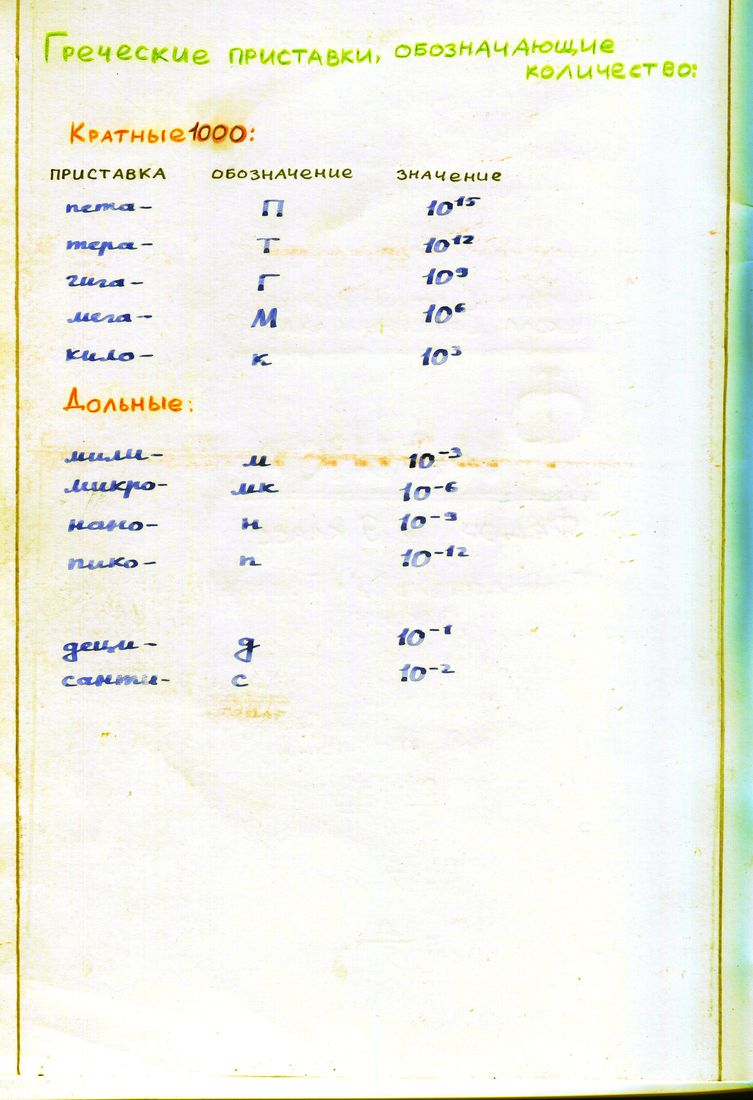 Греческие приставки, обозначающие
количество:
Кратные 1000:
приставка обозначение значение
пета- П 10¹⁵
тера- Т 10¹²
гига- Г 10⁹
мега- М 10⁶
кило- к 10³
Дольные:
мили- м 10⁻³
микро- мк 10⁻⁶
нано- н 10⁻⁹
пико- п 10⁻¹²
деци- д 10⁻¹
санти- с 10⁻²